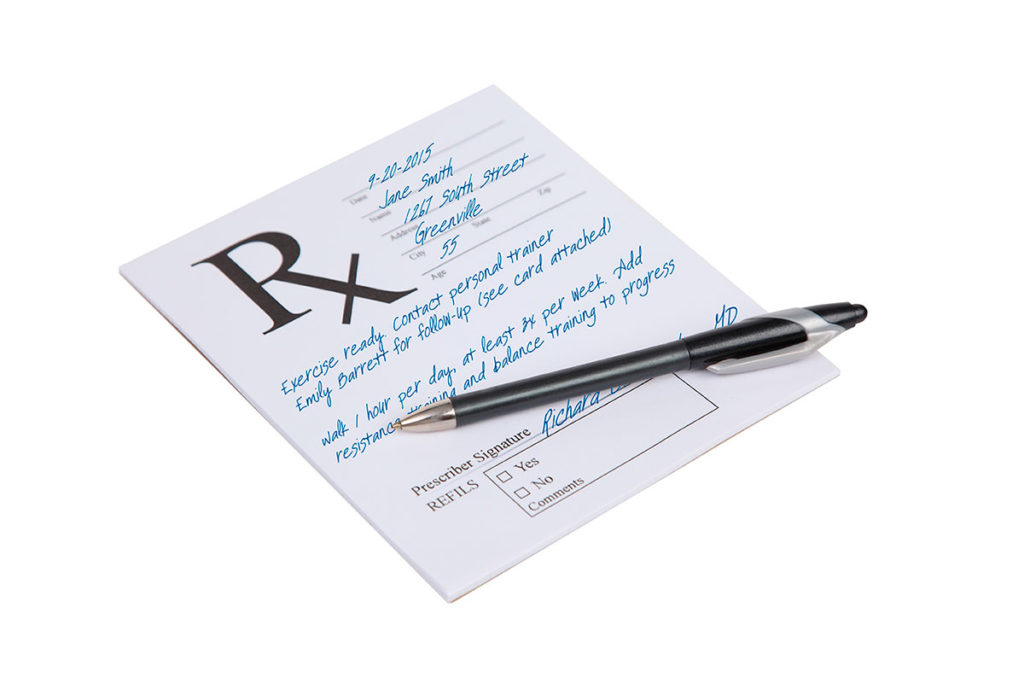 Rx
Date 9-20-2015
Name Jane Smith
Address 1267 South Street
City Greenville State Zip
Age 55
Exercise ready. Contact personal trainer
Emily Barrett for follow-up (see card attached)
Walk 1 hour per day, at least 3x per week. Add
resistance training and balance training to progress
Prescriber Signature Richard MD
REFILS
Yes
No
Comments